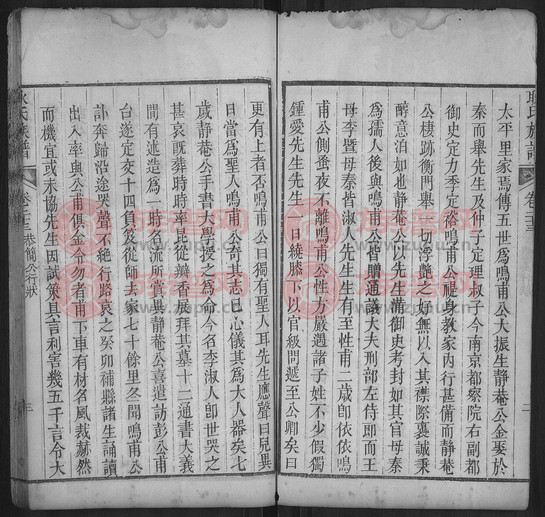 耿氏族譜
卷十三
二
太平里家焉傳五世為鳴甫公大振生靜菴公金娶於
秦而舉先生及仲子定理叔子今南京都察院右副都
御史定力季定裕鳴甫公禔身教家內行甚備而靜菴
公棲跡衡門舉一切浮豔之好無以入其襟際裏誠秉
醇意泊如也靜菴公以先生備御史考封如其官母秦
為孺人後與鳴甫公皆贈通議大夫刑部左侍郎而王
母李暨母秦皆淑人先生生有至性甫二歲即依依鳴
甫公側蚤夜不離鳴甫公性方嚴遇諸子姓不少假獨
鍾愛先生先生一日繞膝下以官級問遞至公卿矣曰
更有上者否鳴甫公曰獨有聖人耳先生應聲曰兒異
日當為聖人鳴甫公奇其志已心儀其為大人器矣七
歲靜菴公手書大學授之為命今名李淑人即世哭之
甚哀既葬時時率昆從瓣香展拜其墓十二通書大義
間有述造為一時名流所賞異靜菴公喜遣訪彭公甫
台遂定交十四負笈從師去家七十餘里冬聞鳴甫公
訃奔歸沿途哭聲不絕行路哀之癸卯補縣諸生誦讀
出入率與公甫俱金令勿者甫下車有材名風裁赫然
而機宜或未協先生因試策具言利害幾五千言令大
耿氏族譜
卷十三 恭簡公行狀
三